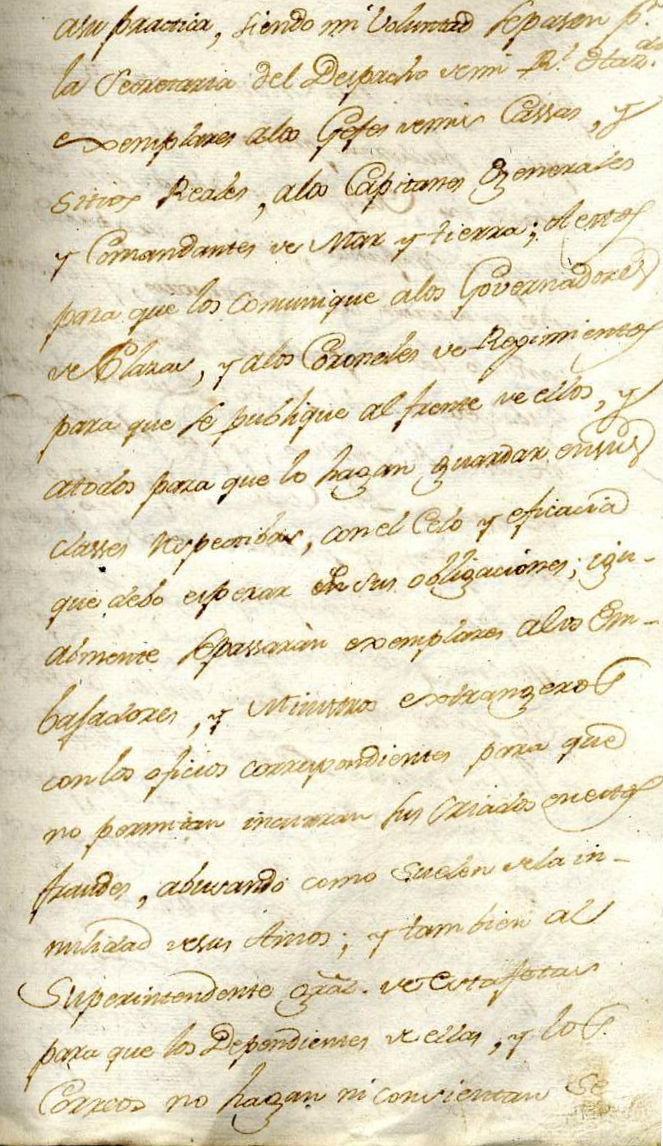 asu practica, siendo mi Voluntad sepasen p.r
la Secretaria del Despacho de mi R.l
exemplares alos Gefes demis Cassas, y
Sitios Reales, alos Capitanes Generales
y Comandantes de Mar y tierra; a estos
para que los comunique alos Governadores
de Plazas, y alos Coroneles de Regimientos
para que se publique al frente de ellos, y
atodos para que lo hagan guardar ensus
classes respectibas, con el Celo y eficacia
que debo esperar de sus obligaciones; igu-
almente sepassaràn exemplares alos Em-
bajadores, y Ministros extrangeros
con los oficios correspondientes para que
no permitan incurran sus Criados enestos
fraudes, abusando como suelen dela in-
mu­nidad desus Amos; y tambien al
Superintendente gral. de Estafetas
para que los Dependientes de ellas, y los
Correos no hagan ni consientan se